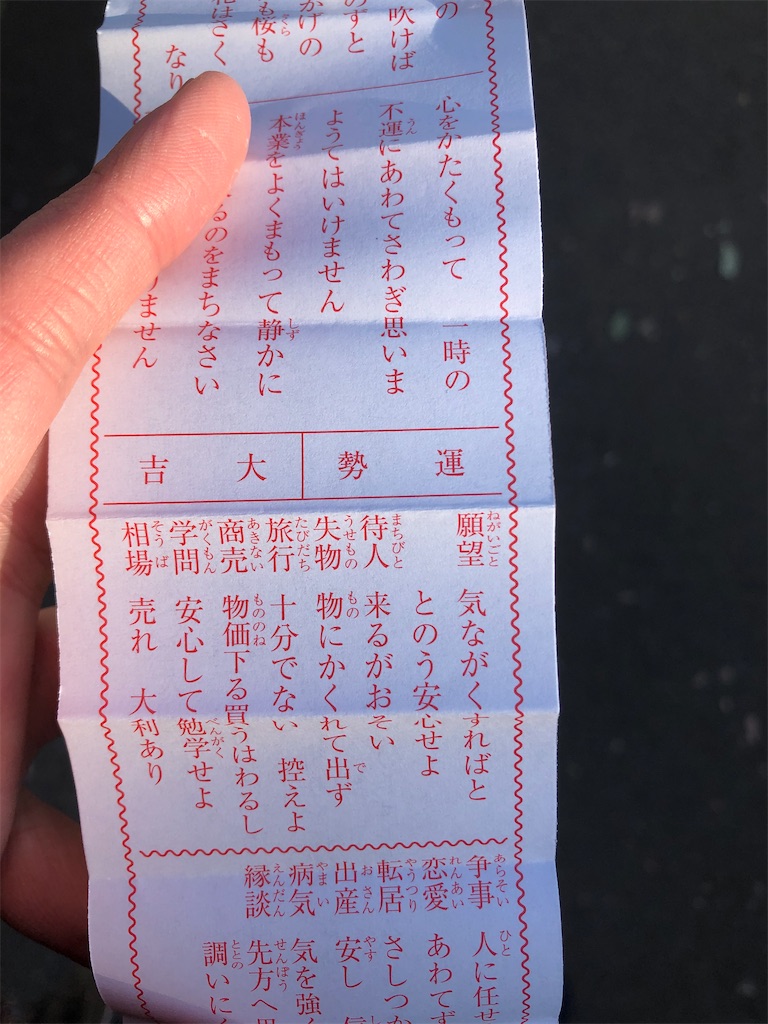 の
吹けば
のずと
げの
も桜も
はさく
なり
心をかたくもって 一時の
不運にあわてさわぎ思いま
ようてはいけません
本業をよくまもって静かに
るのをまちなさい
りません
運勢 大吉
願望 気ながくすればと
とのう安心せよ
待人 来るがおそい
失物 物にかくれて出ず
旅行 十分でない 控えよ
商売 物価下る買うはわるし
学問 安心して勉学せよ
相場 売れ 大利あり
争事 人に任せ
恋愛 あわてず
転居 さしつか
出産 安し
病気 気を強く
縁談 先方へ
調いにく